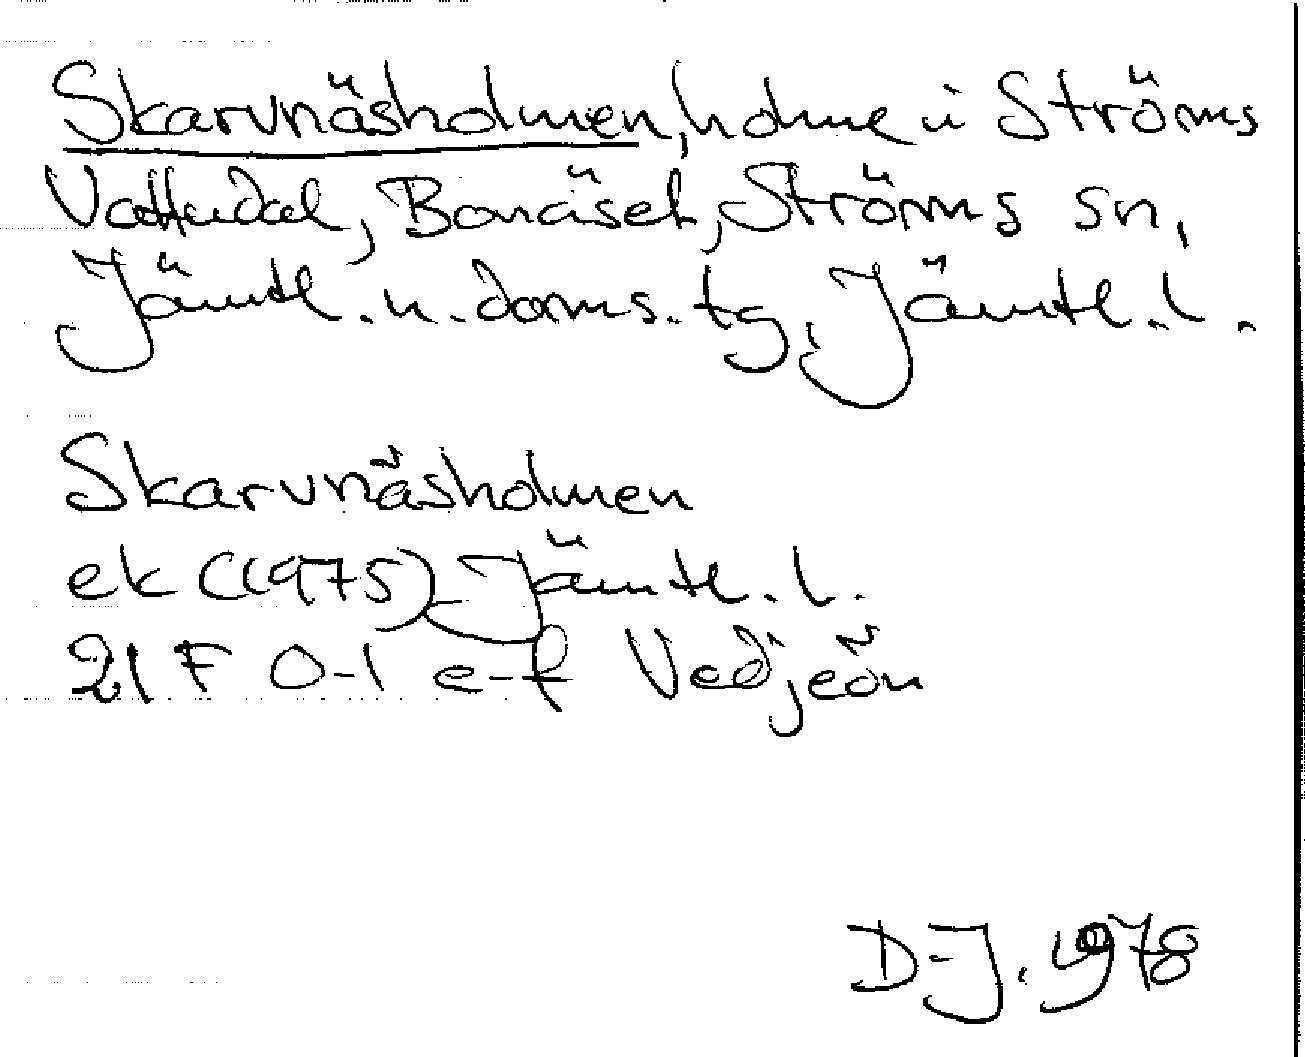 Skarvnäsholmen, holme i Ströms
Vattudal, Bonäset, Ströms sn,
Jämtl. n. doms. tg, Jämtl. l.
Skarvnäsholmen
ek (1975) Jämtl. l.
21 F 0-1 e-f Vedjeön
D-J. 1978